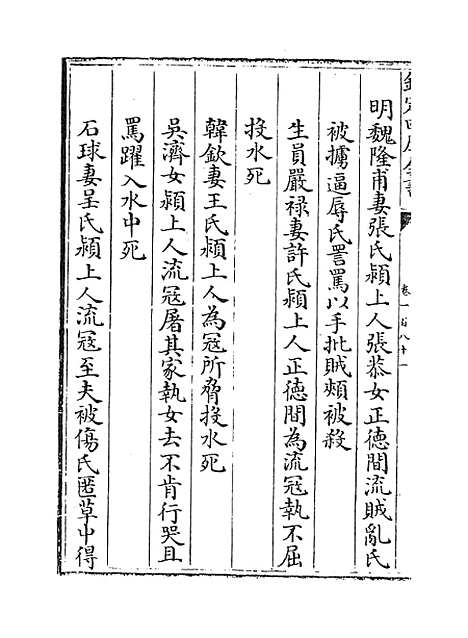 欽定四庫全書
卷一百八十一
明魏隆甫妻張氏潁上人張恭女正德間流賊亂氏
被擄逼辱氏詈罵以手批賊頰被殺
生員嚴禄妻許氏潁上人正德間為流寇執不屈
投水死
韓欽妻王氏潁上人為寇所脅投水死
吳濟女潁上人流寇屠其家執女去不肯行哭且
罵躍入水中死
石球妻呈氏潁上人流寇至夫被傷氏匿草中得